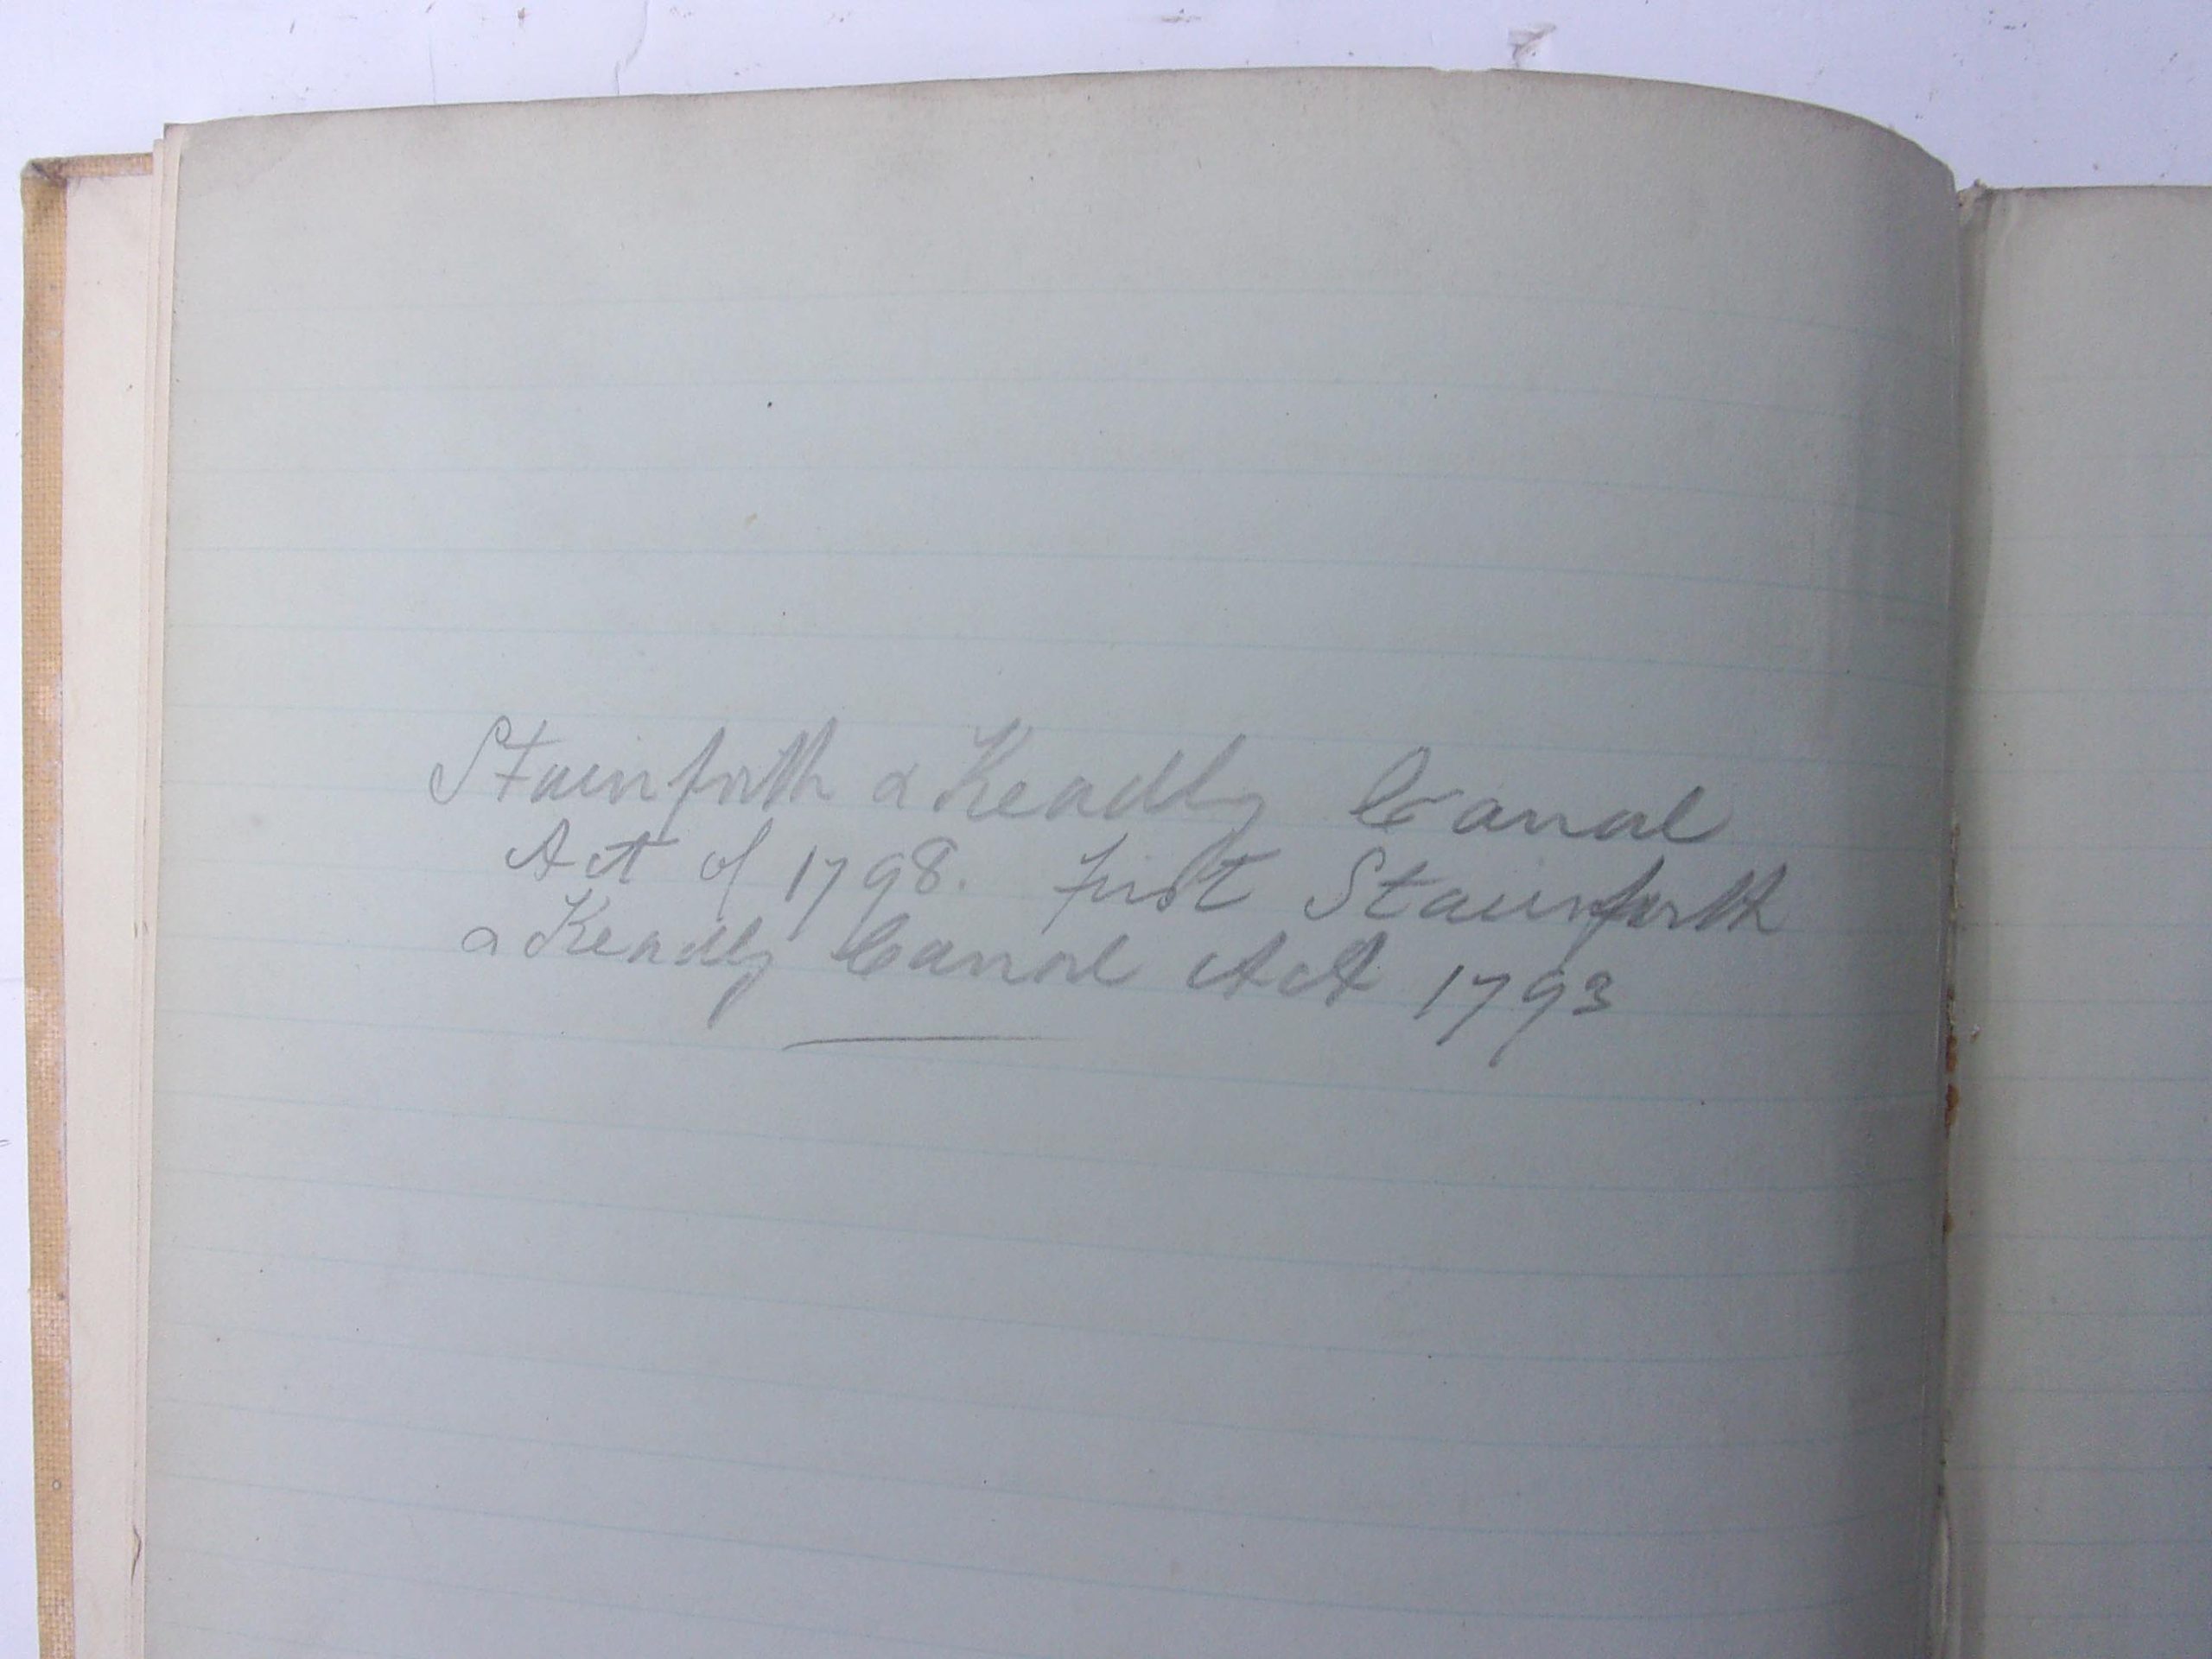 Stainforth & Keadby Canal
Act of 1798. First Stainforth
& Keadby Canal Act 1793